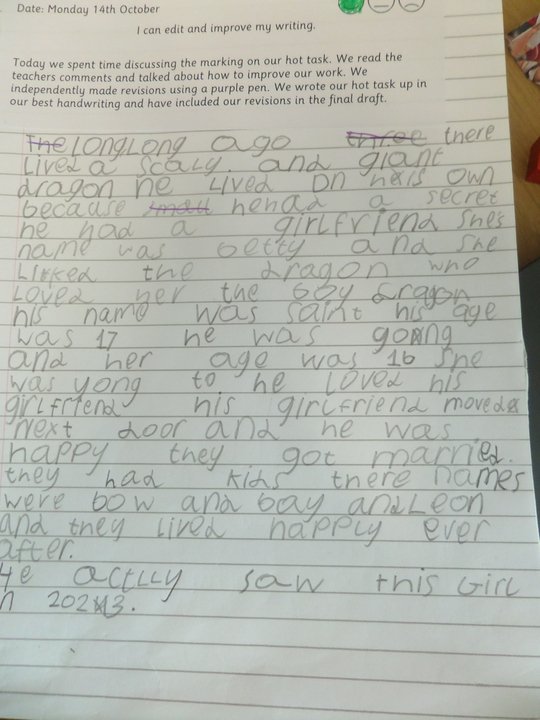 Date: Monday 14th October
I can edit and improve my writing.
Today we spent time discussing the marking on our hot task. We read the
teachers comments and talked about how to improve our work. We
independently made revisions using a purple pen. We wrote our hot task up in
our best handwriting and have included our revisions in the final draft.
The LongLong ago three there
Lived a scaly. and giant
dragon he Lived on his own
because small hehad a secret
he had a girlfriend she's
name was betty and she
Likked the dragon who
Loved her the boy dragon
his name was saint his age
was 17 he was going
and her age was 16 she
was yong to he Loved his
girlfriend his girlfriend moved
Next door and he was
happy they got married.
they had kids there names
were bow and bay and Leon
and they lived happily ever
after.
He actlly saw this Girl
n 2023.